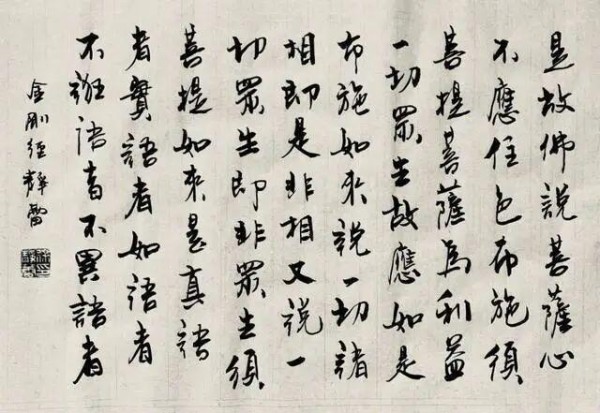 是故佛說菩薩心
不應住色布施須
菩提菩薩為利益
一切眾生故應如是
布施如來說一切諸
相即是非相又說一
切眾生即非眾生須
菩提如來是真語
者實語者如語者
不誑語者不異語者
金剛經